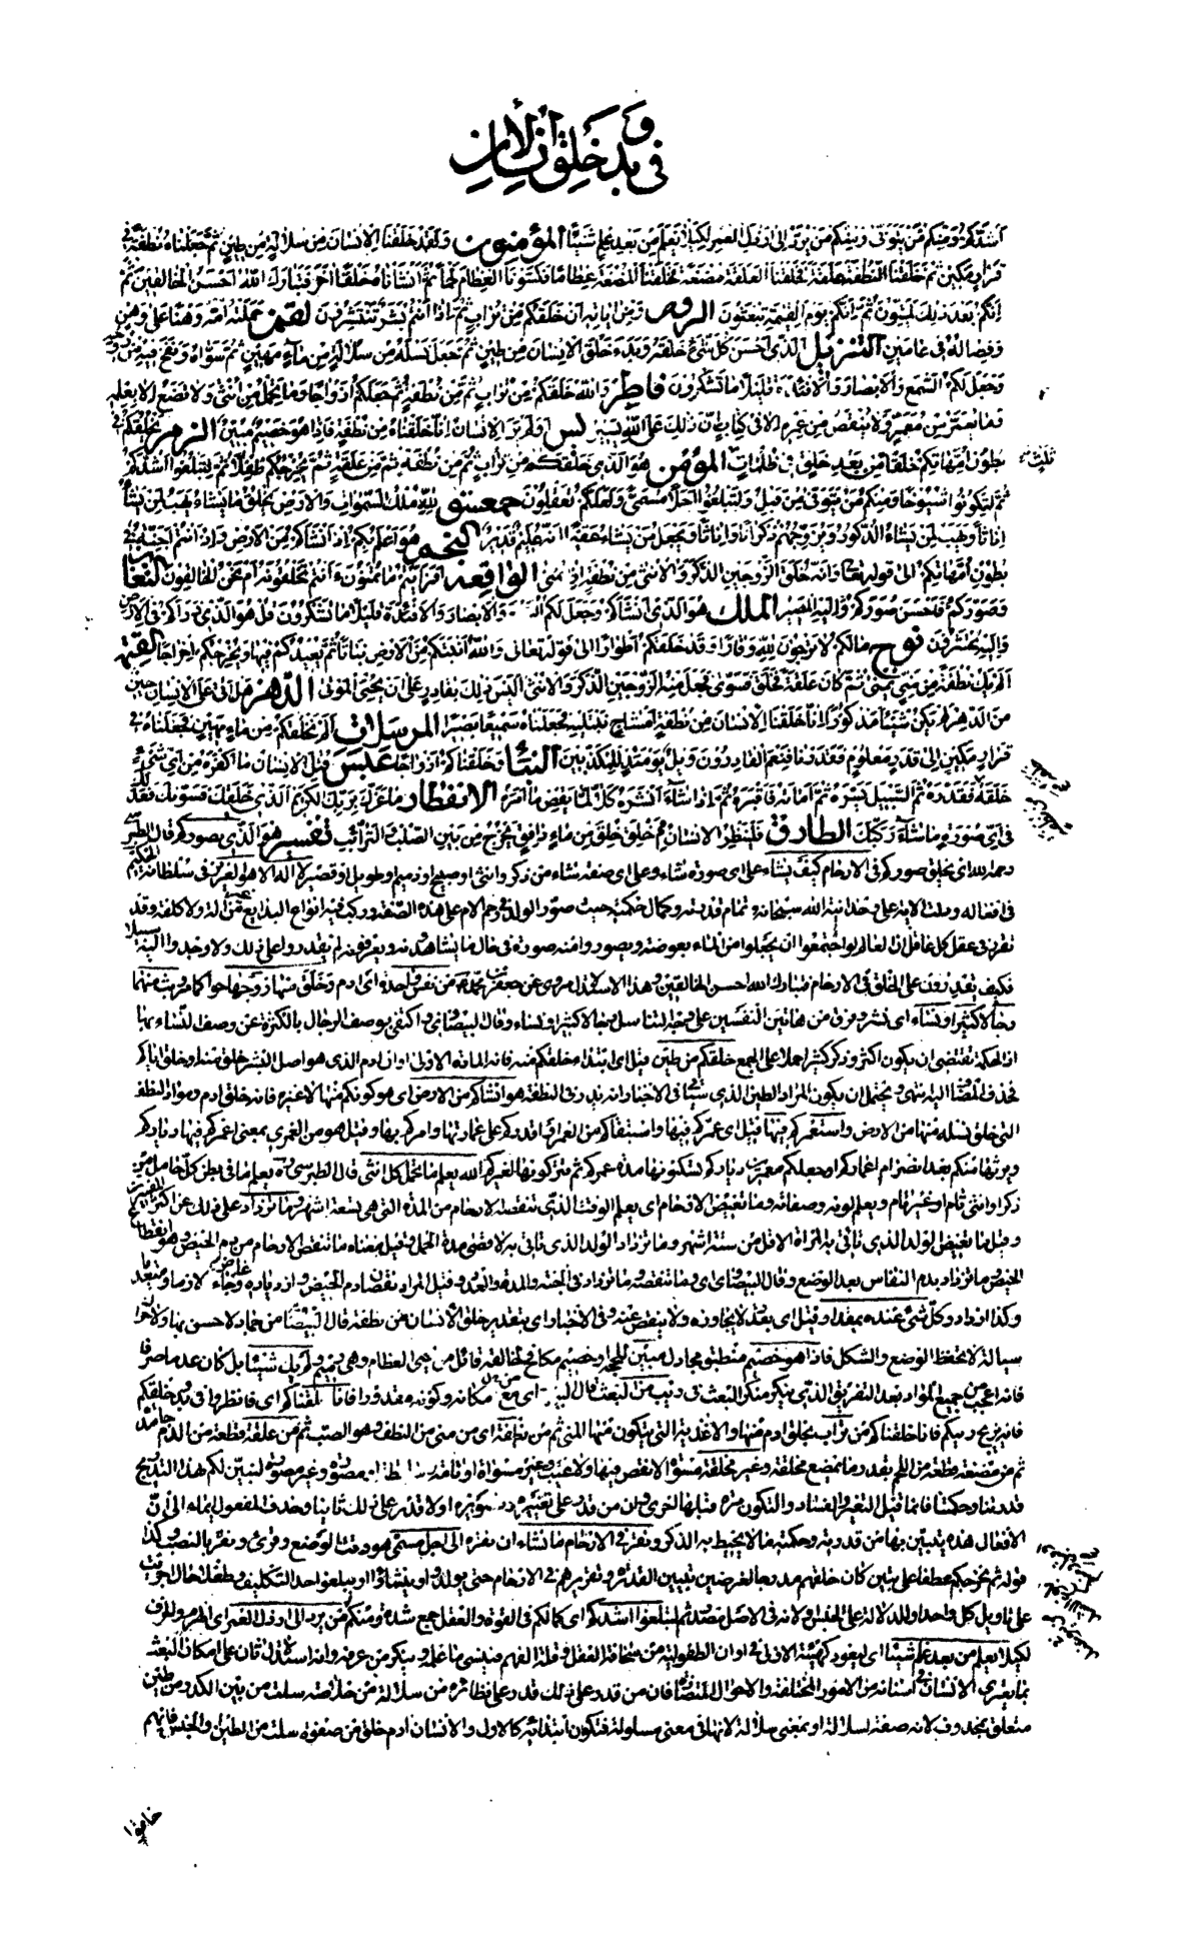 في بدو خلق الإنسان
أشدكم ومنكم من يتوفى ومنكم من يرد الى أرذل العمر لكيلا يعلم من بعد علم شيئا المؤمنون ولقد خلقنا الإنسان من سلالة من طين ثم جعلناه نطفة في
قرار مكين ثم خلقنا النطفة علقة فخلقنا العلقة مضغة فخلقنا المضغة عظاما فكسونا العظام لحما ثم أنشأناه خلقا آخر فتبارك الله أحسن الخالقين ثم
إنكم بعد ذلك لميتون ثم إنكم يوم القيمة تبعثون الروم ومن اياته أن خلقكم من تراب ثم إذا أنتم بشر تنتشرون لقمن حملته أمه وهنا على وهن
وفصاله في عامين التنزيل الذي أحسن كل شيء خلقه وبدء خلق الإنسان من طين ثم جعل نسله من سلالة من ماء مهين ثم سواه ونفخ فيه من روحه
وجعل لكم السمع والأبصار والأفئدة قليلا ما تشكرون فاطر والله خلقكم من تراب ثم من نطفة ثم جعلكم أزواجا وما تحمل من أنثى ولا تضع الا بعلمه
وما يعمر من معمر ولا ينقص من عمره الا في كتاب إن ذلك على الله يسير يس أولم ير الإنسان انا خلقناه من نطفة فاذا هو خصيم مبين الزمر يخلقكم في
بطون أمهاتكم خلقا من بعد خلق في ظلمات ثلث المؤمن هو الذي خلقكم من تراب ثم من نطفة ثم من علقة ثم يخرجكم طفلا ثم لتبلغوا أشدكم
ثم لتكونوا شيوخا ومنكم من يتوفى من قبل ولتبلغوا أجلا مسمى ولعلكم تعقلون حمعسق لله ملك السموات والارض يخلق ما يشاء يهب لمن يشاء
إناثا ويهب لمن يشاء الذكور أو يزوجهم ذكرانا وإناثا ويجعل من يشاء عقيما انه عليم قدير النجم هو أعلم بكم إذ أنشأكم من الأرض وإذ أنتم أجنة في
بطون أمهاتكم الى قوله تعالى وأنه خلق الزوجين الذكر والأنثى من نطفة إذا تمنى الواقعة أفرأيتم ما تمنون ءأنتم تخلقونه أم نحن الخالقون التغابن
وصوركم فأحسن صوركم واليه المصير الملك هو الذي أنشأكم وجعل لكم السمع والأبصار والأفئدة قليلا ما تشكرون قل هو الذي ذرأكم في الأرض
واليه تحشرون نوح مالكم لا ترجون لله وقارا وقد خلقكم أطوارا الى قوله تعالى والله أنبتكم من الأرض نباتا ثم يعيدكم فيها ويخرجكم إخراجا القيمة
ألم يك نطفة من مني يمنى ثم كان علقة فخلق فسوى فجعل منه الزوجين الذكر والأنثى أليس ذلك بقادر على أن يحيي الموتى الدهر هل أتى على الإنسان حين
من الدهر لم يكن شيئا مذكورا إنا خلقنا الإنسان من نطفة أمشاج نبتليه فجعلناه سميعا بصيرا المرسلات ألم نخلقكم من ماء مهين فجعلناه في
قرار مكين إلى قدر معلوم فقدرنا فنعم القادرون ويل يومئذ للمكذبين النبأ وخلقناكم أزواجا عبس قتل الإنسان ما أكفره من أي شيء
خلقه فقدره ثم السبيل يسره ثم أماته فأقبره ثم إذا شاء أنشره كلا لما يقض ما أمره الانفطار ما غرك بربك الكريم الذي خلقك فسويك فعدلك
في أي صورة ما شاء ركبك الطارق فلينظر الإنسان مم خلق خلق من ماء دافق يخرج من بين الصلب والترائب تفسير هو الذي يصوركم قال الطبرسي
رحمه الله اي يخلق صوركم في الارحام كيف يشاء على اي صورة شاء وعلى اي صفة شاء من ذكر وانثى او صبيح او دميم او طويل او قصير لا اله الا هو العزيز في سلطانه الحكيم
في افعاله ودلت الاية على وحدانية الله سبحانه وتمام قدرته وكمال حكمته حيث صور الولد في رحم الام على هذه الصفة وركب فيه انواع البدايع من غير الة ولا كلفة وقد
تقرر في عقل كل عاقل ان العالم لو اجتمعوا ان يجعلوا من الماء بعوضة ويصوروا منه صورة في حال ما يشاهدونه ويعرفونه لم يقدروا على ذلك ولا وجدوا اليه سبيلا
فكيف يقدرون على الخلق في الارحام فتبارك الله احسن الخالقين وهذا الاستدلال مروي عن جعفر بن محمد من نفس واحدة اي ادم وخلق منها زوجها حوا كما مر وبث منهما
رجالا كثيرا ونساء اي نشر وفرق من هاتين النفسين على وجه التناسل رجالا كثيرا ونساء وقال البيضاوي واكتفى بوصف الرجال بالكثرة عن وصف النساء بها
اذ الحكمة تقتضي ان يكون اكثر وذكر كثيرا حملا على الجمع خلقكم من طين قيل اي ابتداء خلقكم منه فانه المادة الاولى او ان ادم الذي هو اصل البشر خلق منه او خلق اباكم
فحذف المضاف اليه انتهى ويحتمل ان يكون المراد الطين الذي سيأتي في الاخبار انه يذر في النطفة هو انشأكم من الارض اي هو كونكم منها لا غيره فانه خلق ادم ومواد النطف
التي خلق نسله منها من الارض واستعمركم فيها قيل اي عمركم فيها واستبقاكم من العمر او اقدركم على عمارتها وامركم بها وقيل هو من العمرى بمعنى اعمركم فيها دياركم
ويرثها منكم بعد انصرام اعماركم او جعلكم معمرين دياركم تسكنونها مدة عمركم ثم تتركونها لغيركم الله يعلم ما تحمل كل انثى قال الطبرسي ره يعلم ما في بطن كل حامل من
ذكر او انثى تام او غير تام ويعلم لونه وصفاته وما تغيض الارحام اي يعلم الوقت الذي تنقصه الارحام من المدة التي هي تسعة اشهر وما تزداد على ذلك عن اكثر المفسرين
وقيل ما تغيض الولد الذي تأتي به المرأة لاقل من ستة اشهر وما تزداد الولد الذي تأتي به لاقصى مدة الحمل وقيل معناه ما تنقص الارحام من دم الحيض وهو انقطاع
الحيض وما تزداد بدم النفاس بعد الوضع وقال البيضاوي اي وما تنقصه وما تزداد في الجثة والمدة والعدد وقيل المراد نقصان دم الحيض وازدياده وغاض جاء لازما ومتعديا
وكذا ازداد وكل شيء عنده بمقدار وقيل اي بقدر لا يجاوزه ولا ينقص عنه وفي الاخبار اي بتقدير خلق الانسان من نطفة قال البيضاوي من جماد لا حس بها ولا حراك
سيالة لا تحفظ الوضع والشكل فاذا هو خصيم منطيق مجادل مبين للحجة او خصيم مكافح لخالقه قائل من يحيي العظام وهي رميم ولم يك شيئا بل كان عدما صرفا
فانه اعجب من جميع المواد بعد التفريق الذي ينكر منكر البعث في ريب من البعث قال من امكانه وكونه مقدورا فانا خلقناكم اي فانظروا في بدو خلقكم
فانه يزيح ريبكم فانا خلقناكم من تراب بخلق ادم منها والاغذية التي يتكون منها المني ثم من نطفة اي من مني من النطف وهو الصب ثم من علقة قطعة من الدم جامدة
ثم من مضغة قطعة من اللحم بقدر ما يمضغ مخلقة وغير مخلقة مسواة لا نقص فيها ولا عيب وغير مسواة او تامة وساقطة او مصورة وغير مصورة لنبين لكم هذا التدريج
قدرتنا وحكمتنا فانما قبل التغير والفساد والتكون مرة قبلها اخرى وان من قدر على تغييره وتصويره اولا قدر على ذلك ثانيا وحذف المفعول ايماء الى ان
الافعال هذه يتبين بها من قدرته وحكمته ما لا يحيط به الذكر ونقر في الارحام ما نشاء ان نقره الى اجل مسمى هو وقت الوضع وقرئ ونقر بالنصب وكذا
قوله ثم نخرجكم عطفا على نبين كان خلقهم مدرجا لغرضين تبيين القدرة وتقريرهم في الارحام حتى يولدوا وينشأوا ويبلغوا حد التكليف وطفلا حال اجريت
على تأويل كل واحد او للدلالة على الجنس او لانه في الاصل مصدر ثم لتبلغوا اشدكم اي كمالكم في القوة والعقل جمع شدة ومنكم من يرد الى ارذل العمر اي الهرم والخرف
لكيلا يعلم من بعد علم شيئا اي ليعود كهيئته الاولى في اوان الطفولية من سخافة العقل وقلة الفهم فينسى ما علمه وينكر من عرفه وانه استدلال ثان على امكان البعث
بما يعتري الانسان في اسنانه من الامور المختلفة والاحوال المتضادة فان من قدر على ذلك قدر على نظائره من سلالة من خلاصة سلت من بين الكدر من طين
متعلق بمحذوف لانه صفة لسلالة او بمعنى سلالة لانها في معنى مسلولة فتكون ابتدائية كالاولى والانسان ادم خلق من صفوة سلت من الطين والجنس فانهم
خلقوا